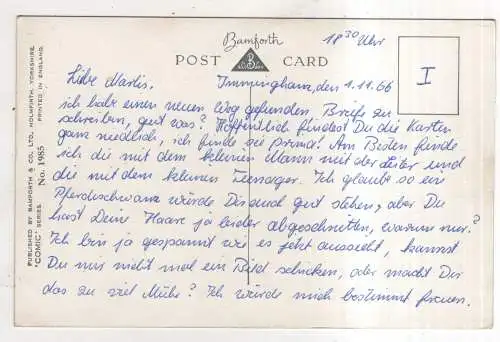 Bamforth
18³⁰ Uhr
POST CARD
I
Immingham, den 1.11.66
Liebe Marlis,
ich habe einen neuen Weg gefunden Briefe zu
schreiben, gut was? Hoffentlich findest Du die Karten
ganz niedlich, ich finde sie prima! Am Besten finde
ich die mit dem kleinen Mann mit der Leiter und
die mit dem kleinen Teenager. Ich glaube so ein
Pferdeschwanz würde Dir auch gut stehen, aber Du
hast Deine Haare ja leider abgeschnitten, warum nur?
Ich bin ja gespannt wie es jetzt aussieht, kannst
Du mir nicht mal ein Bild schicken, oder macht Dir
das zu viel Mühe? Ich würde mich bestimmt freuen.
PUBLISHED BY BAMFORTH & CO. LTD., HOLMFIRTH, YORKSHIRE.
"COMIC" SERIES No. 1985 PRINTED IN ENGLAND.